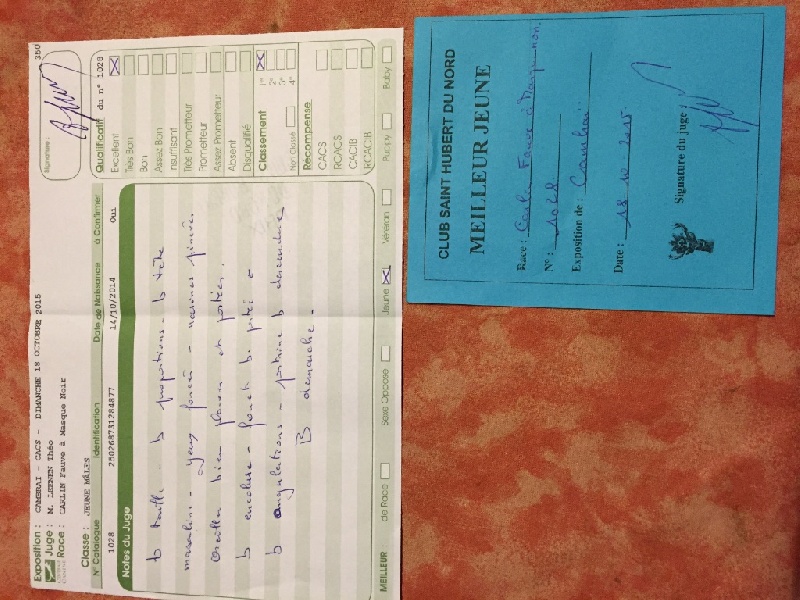 Exposition : CAMBRAI - CACS - DIMANCHE 18 OCTOBRE 2015 350
Juge : M. LEENEN Théo
Race : CARLIN Fauve à Masque Noir
Classe : JEUNE MÂLES
N° Catalogue Identification Date de Naissance à Confirmer
1028 250268731284877 14/10/2014 Oui
Notes du Juge
b taille b proportions - b tête
masculine - yeux foncés - narines
Oreilles bien placées et portées,
b encolure - fouet b. porté -
b angulations - poitrine b descendue
B démarche -
Signature :
Qualificatif du n° 1028
Excellent
Très Bon
Bon
Assez Bon
Insuffisant
Très Prometteur
Prometteur
Assez Prometteur
Absent
Disqualifié
Classement
1er 2e 3e 4e
Non Classé
Récompense
CACS
RCACS
CACIB
RCACIB
MEILLEUR : de Race Sexe Opposé Jeune Vétéran Puppy Baby
CLUB SAINT HUBERT DU NORD
MEILLEUR JEUNE
Race : Carlin Fauve à Masque noir
N° : 1028
Exposition de : Cambrai
Date : 18-10-2015
Signature du juge :